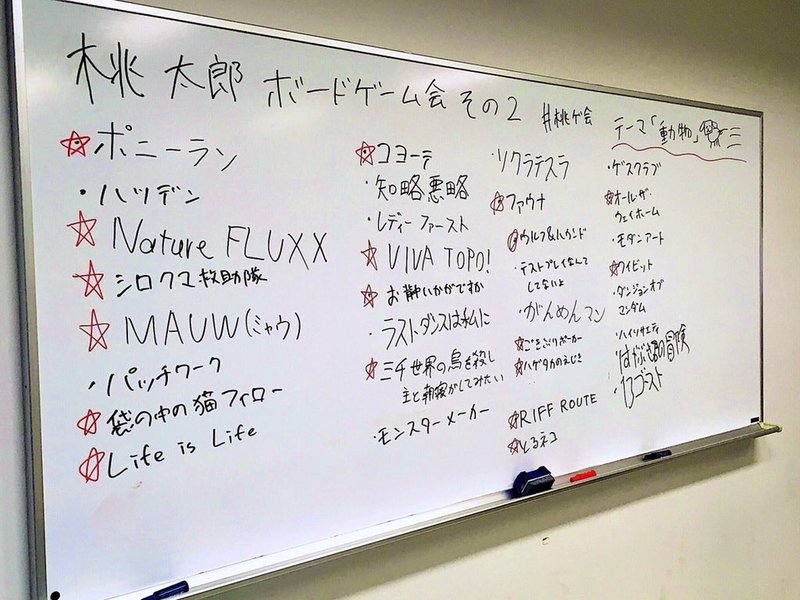 桃太郎 ボードゲーム会 その2 #桃ゲ会
テーマ「動物」
☆ポニーラン
・ハツデン
☆Nature FLUXX
☆シロクマ救助隊
☆MAUW(ミャウ)
・パッチワーク
☆袋の中の猫フィロー
☆Life is Life
☆コヨーテ
・知略悪略
・レディーファースト
☆VIVA TOPO!
☆お静かいかがですか
・ラストダンスは私に
☆三千世界の烏を殺し
主と朝寝がしてみたい
・モンスターメーカー
・ソクラテスラ
☆ファウナ
☆ウルフ&ハウンド
・テストプレイなんて
してないよ
・がんめんマン
☆ごきぶりポーカー
☆ハゲタカのえじき
☆RIFF ROUTE
☆とるネコ
・ゲスクラブ
☆オール・ザ・
ウェイホーム
・モダンアート
☆クイビット
・ダンジョンオブ
マンダム
・ハイソサエティ
・はかぶ通の冒険
・13ゴースト